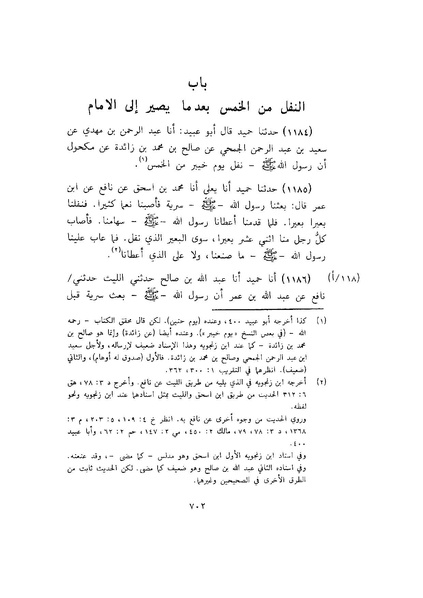 باب
النفل من الخمس بعدما يصير إلى الامام
(١١٨٤) حدثنا حميد قال أبو عبيد: أنا عبد الرحمن بن مهدي عن
سعيد بن عبد الرحمن الجمحي عن صالح بن محمد بن زائدة عن مكحول
أن رسول الله ﷺ - نفل يوم خيبر من الخمس(١).
(١١٨٥) حدثنا حميد أنا يعلي أنا محمد بن اسحق عن نافع عن ابن
عمر قال: بعثنا رسول الله - ﷺ - سرية فأصبنا نعما كثيرا. فنفلنا
بعيرا بعيرا. فلما قدمنا أعطانا رسول الله - ﷺ - سهامنا. فأصاب
كلُّ رجل منا اثني عشر بعيرا، سوى البعير الذي نفل. فما عاب علينا
رسول الله - ﷺ - ما صنعنا، ولا على الذي أعطانا(٢).
(١١٨/أ) (١١٨٦) أنا حميد أنا عبد الله بن صالح حدثني الليث حدثني/
نافع عن عبد الله بن عمر أن رسول الله - ﷺ - بعث سرية قبل
(١) كذا أخرجه أبو عبيد ٤٠٠، وعنده (يوم حنين). لكن قال محقق الكتاب - رحمه
الله - (في بعض النسخ «يوم خيبر»). وعنده أيضا (عن زائدة) وإنما هو صالح بن
محمد بن زائدة - كما عند ابن زنجويه وهذا الإسناد ضعيف لإرساله، ولأجل سعيد
ابن عبد الرحمن الجمحي وصالح بن محمد بن زائدة. فالأول (صدوق له أوهام)، والثاني
(ضعيف). انظرهما في التقريب ١: ٣٠٠، ٣٦٢.
(٢) أخرجه ابن زنجويه في الذي يليه من طريق الليث عن نافع. وأخرج د ٣: ٧٨، هق
٦: ٣١٢ الحديث من طريق ابن اسحق والليث بمثل اسنادهما عند ابن زنجويه ونحو
لفظه.
وروي الحديث من وجوه أخرى عن نافع به. انظر خ ٤: ١٠٩، ٥: ٢٠٣، م ٣:
١٣٦٨، د ٣: ٧٨، ٧٩، مالك ٢: ٤٥٠، مي ٢: ١٤٧، حم ٢: ٦٢، وأبا عبيد
٤٠٠.
وفي اسناد ابن زنجويه الأول ابن اسحق وهو مدلس - كما مضى -، وقد عنعنه.
وفي اسناده الثاني عبد الله بن صالح وهو ضعيف كما مضى. لكن الحديث ثابت من
الطرق الأخرى في الصحيحين وغيرهما.
٧٠٢